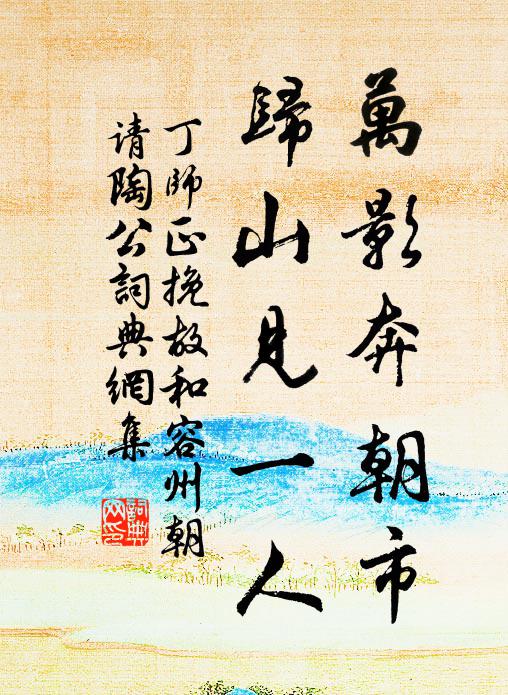 萬影奔朝市
歸山見一人
丁師正挽故和容州朝
请陶公詞典網集
詞典
网印